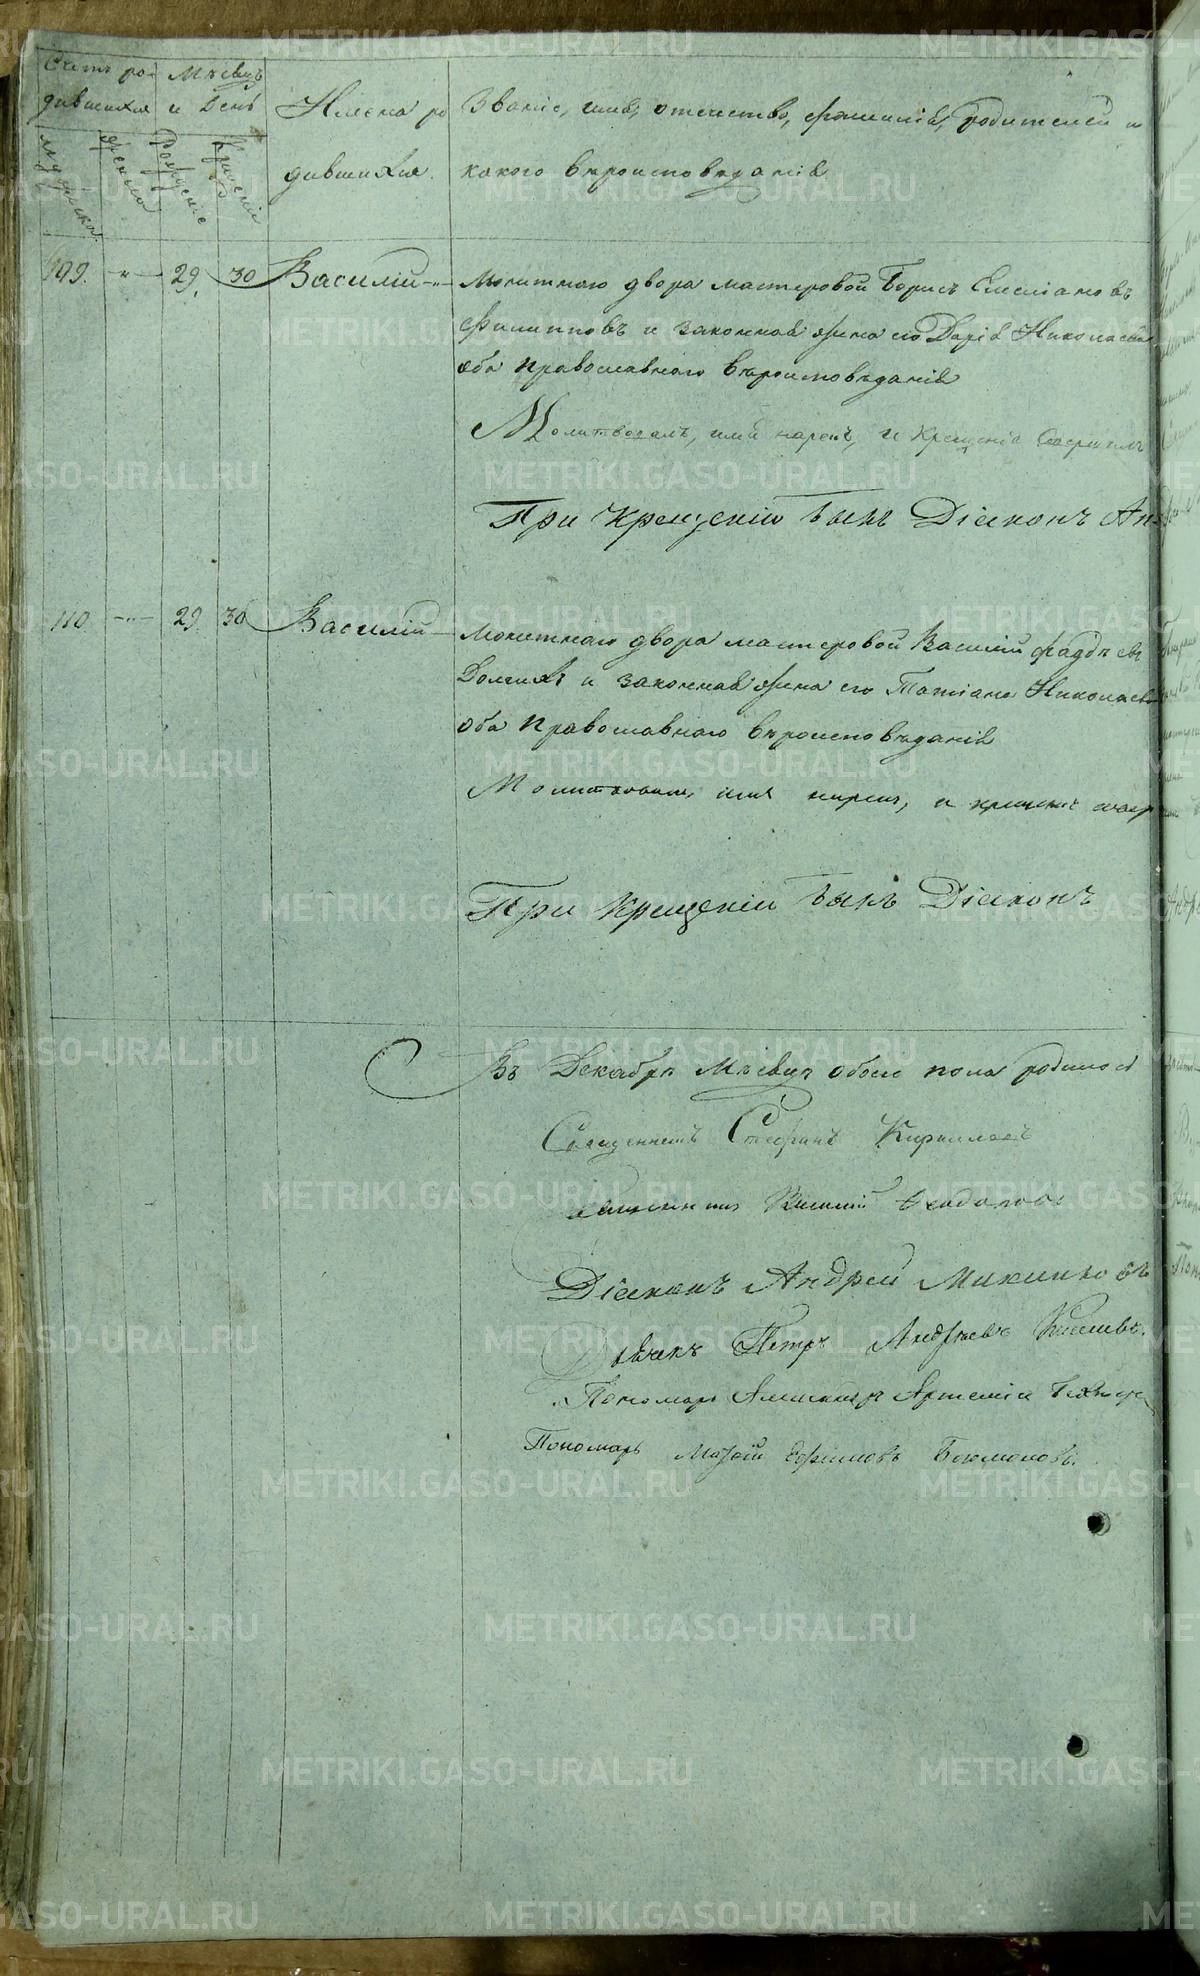 METRIKI.GASO-URAL.RU
Счетъ ро- Мѣсяцъ
дившихся и День
Имена ро
дившихся.
Званіе, имя, отечество, фамилія, родителей и
какого вѣроисповѣданія
мужеска.
женска
Рожденіе
Крещеніе
109. -„- 29. 30 Василій -„- Монетнаго двора мастеровой Борисъ Емеліановъ
Филипповъ и законная жена его Дарія Николаевна
оба православнаго вѣроисповѣданія
Молитвовалъ, имя нарекъ, и крещеніе совершилъ
При крещеніи былъ Діаконъ Ан
110 -„- 29. 30 Василій Монетнаго двора мастеровой Василій Фаддѣевъ
Долгихъ и законная жена его Татіана Николаев
оба православнаго вѣроисповѣданія
Молитвовалъ, имя нарекъ, и крещеніе совер
При крещеніи былъ Діаконъ
Въ Декабрѣ Мѣсяцѣ обоего пола родилось
Священникъ Стефанъ Кирилловъ
Священникъ Василій
Діаконъ Андрей
Дьячекъ Петръ Андрѣевъ
Пономарь Артемій
Пономарь Ефимовъ